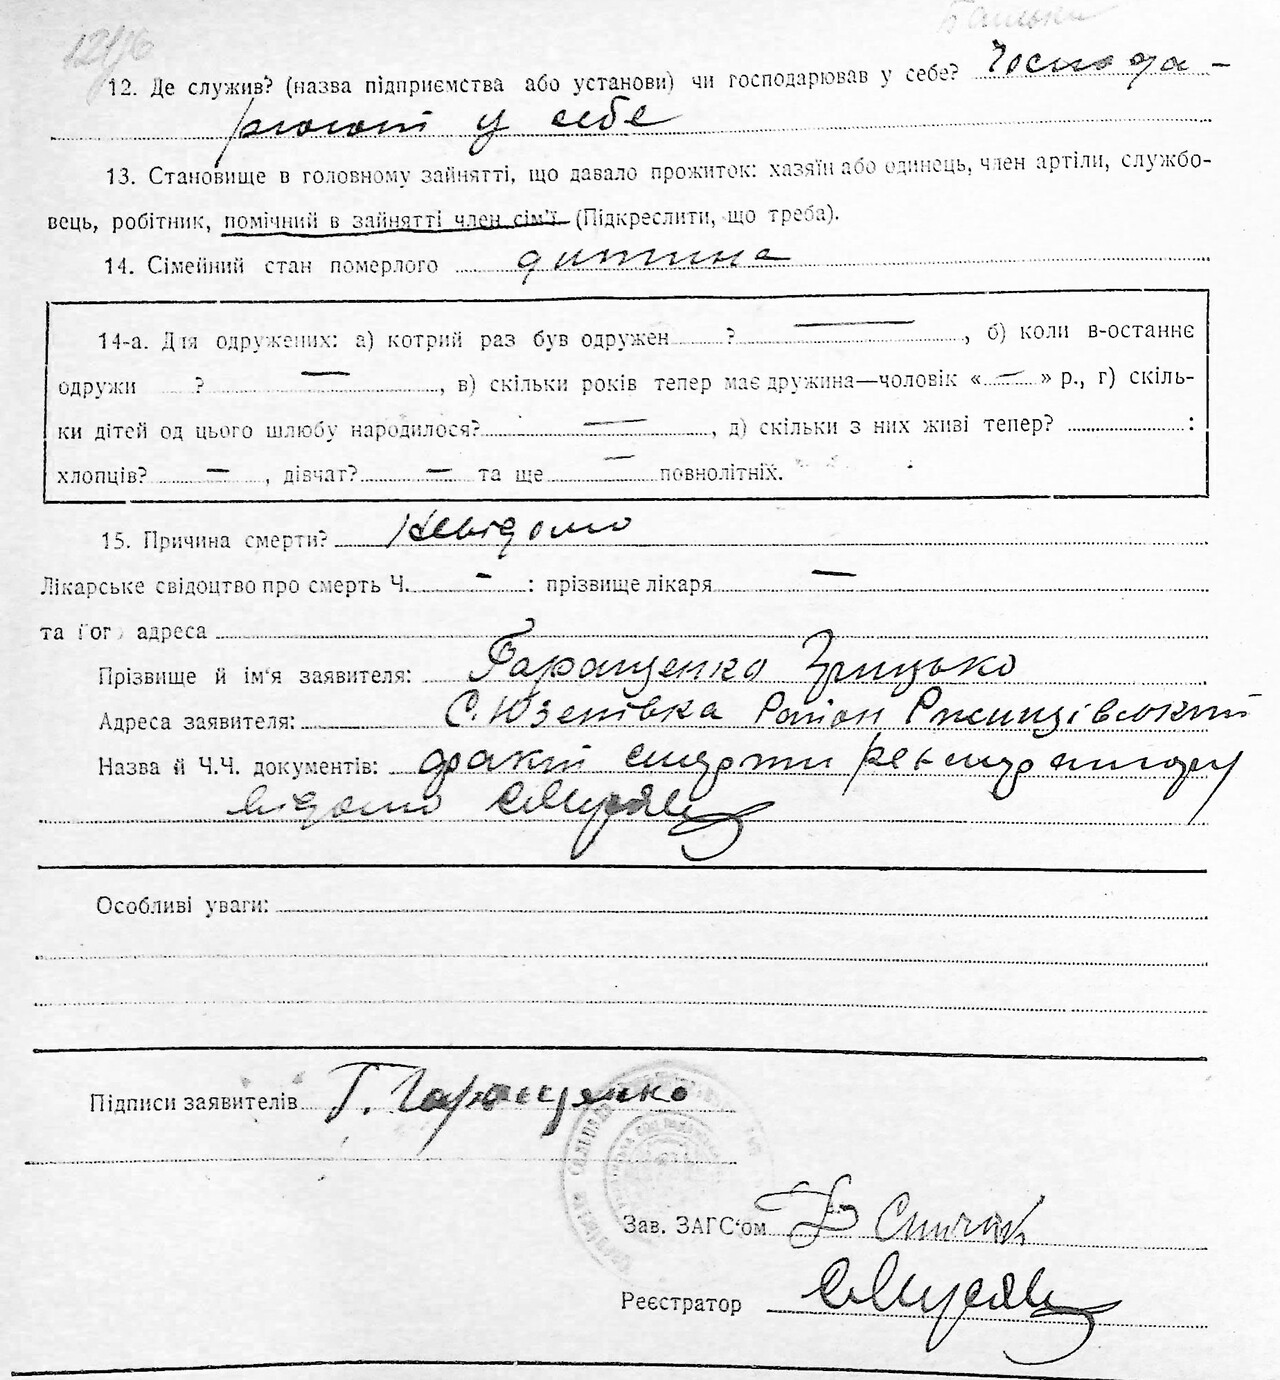 Батьки
12. Де служив? (назва підприємства або установи) чи господарював у себе? Господа-
рюют у себе
13. Становище в головному зайнятті, що давало прожиток: хазяїн або одинець, член артіли, службо-
вець, робітник, помічний в зайнятті член сім'ї (Підкреслити, що треба).
14. Сімейний стан померлого дитина
14-а. Для одружених: а) котрий раз був одружен ? —, б) коли в-останнє
одружи ? —, в) скільки років тепер має дружина—чоловік «—» р., г) скіль-
ки дітей од цього шлюбу народилося? —, д) скільки з них живі тепер? :
хлопців? —, дівчат? — та ще — повнолітніх.
15. Причина смерти? Невідомо
Лікарське свідоцтво про смерть Ч. - : прізвище лікаря —
та його адреса
Прізвище й ім'я заявителя: Гаращенко Грицько
Адреса заявителя: С. Юзепівка Район Ржищівський
Назва й Ч.Ч. документів: факт смерти реєстратору
відомо
Особливі уваги:
Підписи заявителів Г. Гаращенко
Зав. ЗАГС'ом
Реєстратор